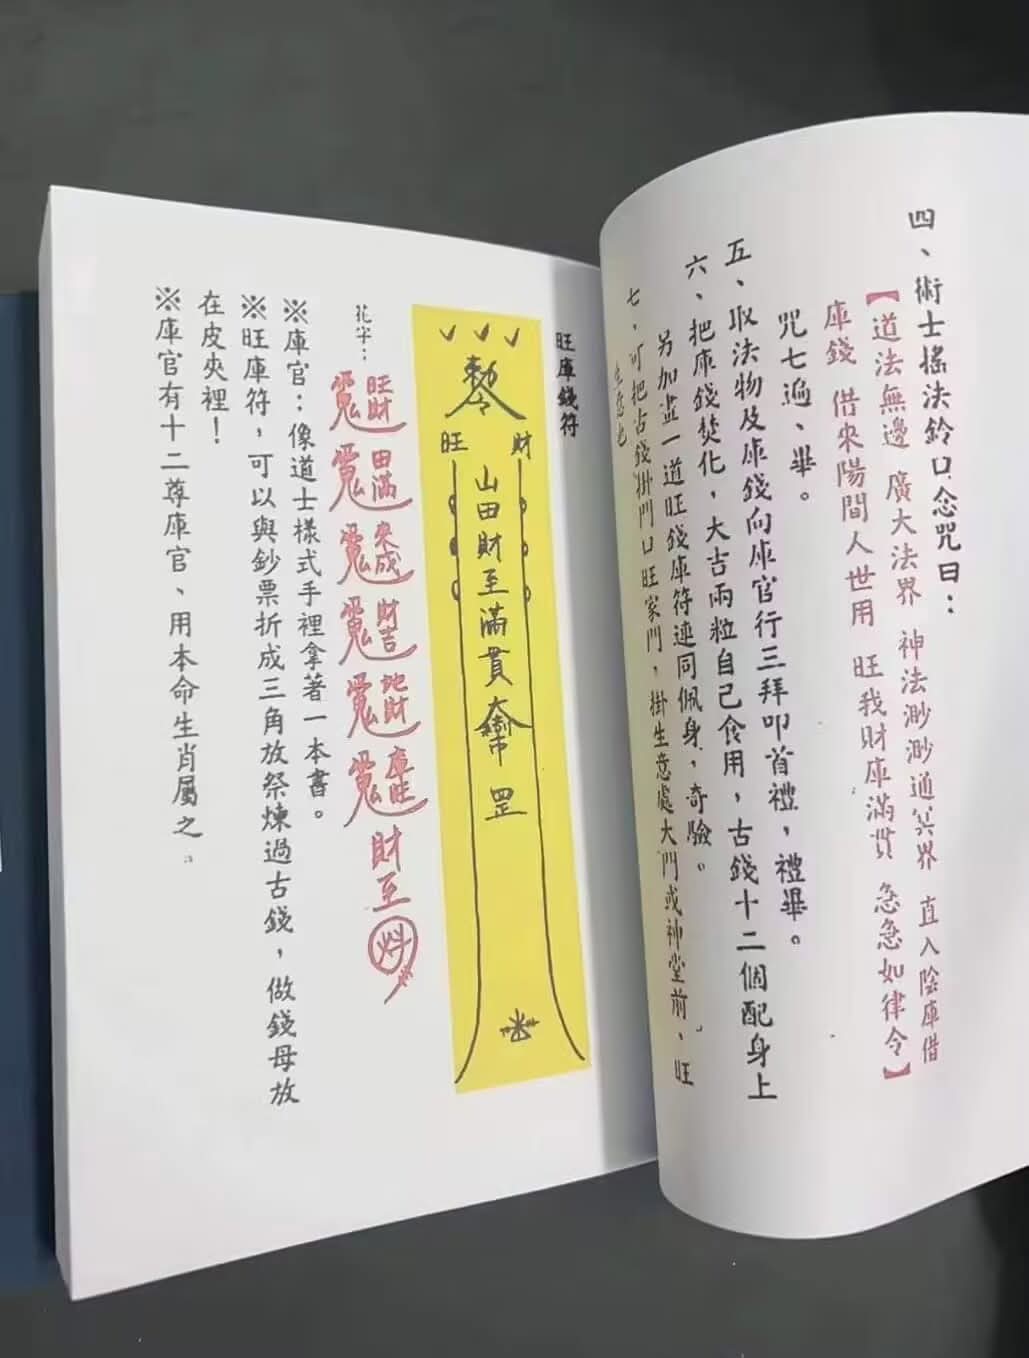 四、術士搖法鈴口念咒曰：
【道法無邊 廣大法界 神法渺渺通冥界 直入陰庫借
庫錢 借來陽間人世用 旺我財庫滿貫 急急如律令】
咒七遍、畢。
五、取法物及庫錢向庫官行三拜叩首禮，禮畢。
六、把庫錢焚化，大吉兩粒自己食用，古錢十二個配身上
另加畫一道旺錢庫符連同佩身，奇驗。
七、可把古錢掛門口旺家門，掛生意處大門或神堂前、旺
生意也
旺庫錢符
勅令
旺 財
山田財至滿貫
罡
花字：
旺財
田滿
來成
財吉
地財
庫旺
財至
※庫官：像道士樣式手裡拿著一本書。
※旺庫符，可以與鈔票折成三角放祭煉過古錢，做錢母放
在皮夾裡！
※庫官有十二尊庫官、用本命生肖屬之。